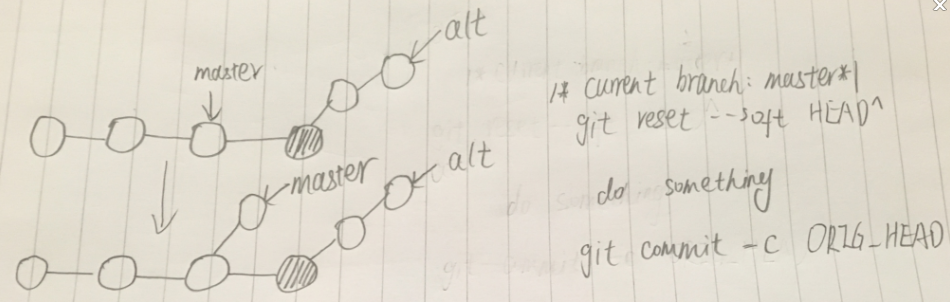 master
alt
master
alt
/* current branch: master*/
git reset --soft HEAD^
do something
git commit -c ORIG_HEAD